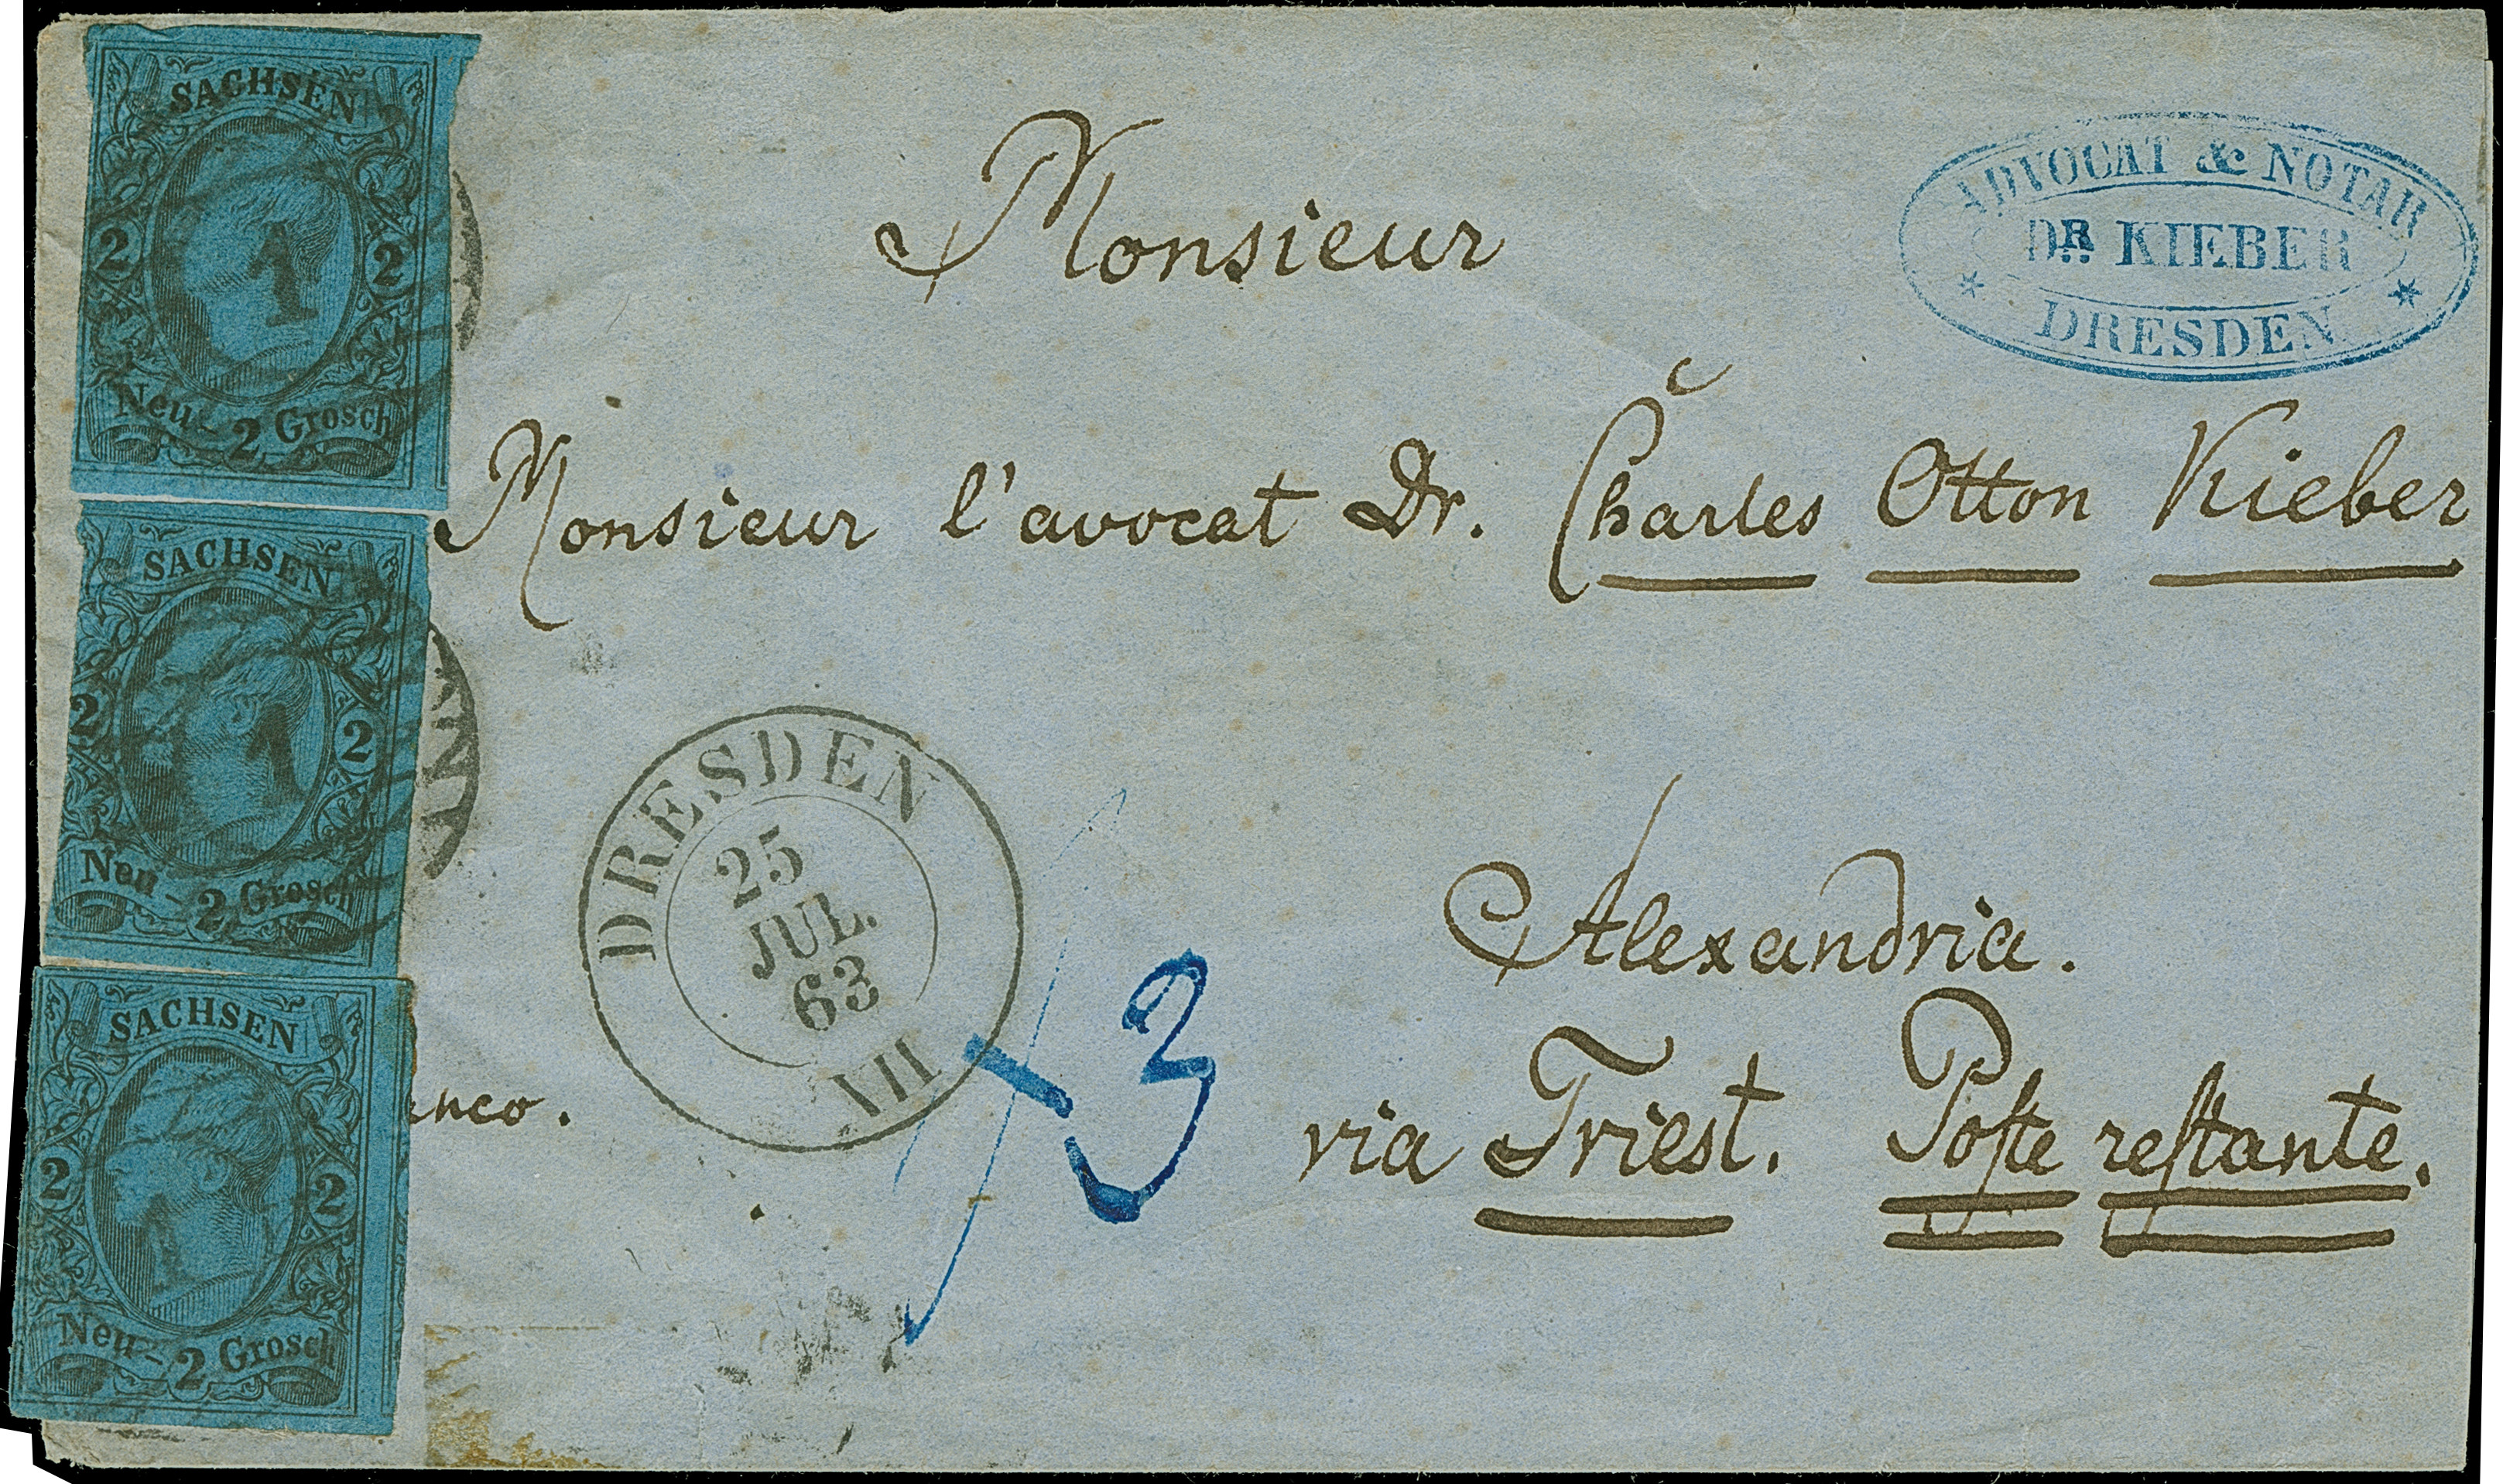 SACHSEN
1
2 2
Neu-2 Grosch
SACHSEN
1
2 2
Neu-2 Grosch
SACHSEN
2 2
Neu-2 Grosch
ADVOCAT & NOTAR
DR. KIEBER
DRESDEN
Monsieur
Monsieur l'avocat Dr. Charles Otton Kieber
DRESDEN
25
JUL.
63
VII
Alexandria.
3
nco.
via Triest. Poste restante.